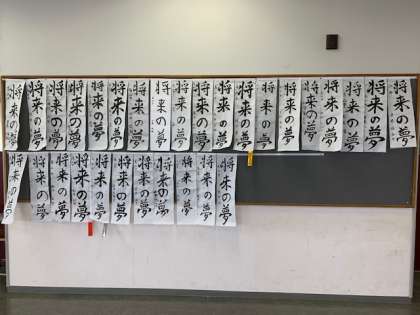 将来の夢
将来の夢
将来の夢
将来の夢
将来の夢
将来の夢
将来の夢
将来の夢
将来の夢
将来の夢
将来の夢
将来の夢
将来の夢
将来の夢
将来の夢
将来の夢
将来の夢
将来の夢
将来の夢
将来の夢
将来の夢
将来の夢
将来の夢
将来の夢
将来の夢
将来の夢
将来の夢
将来の夢
将来の夢
将来の夢